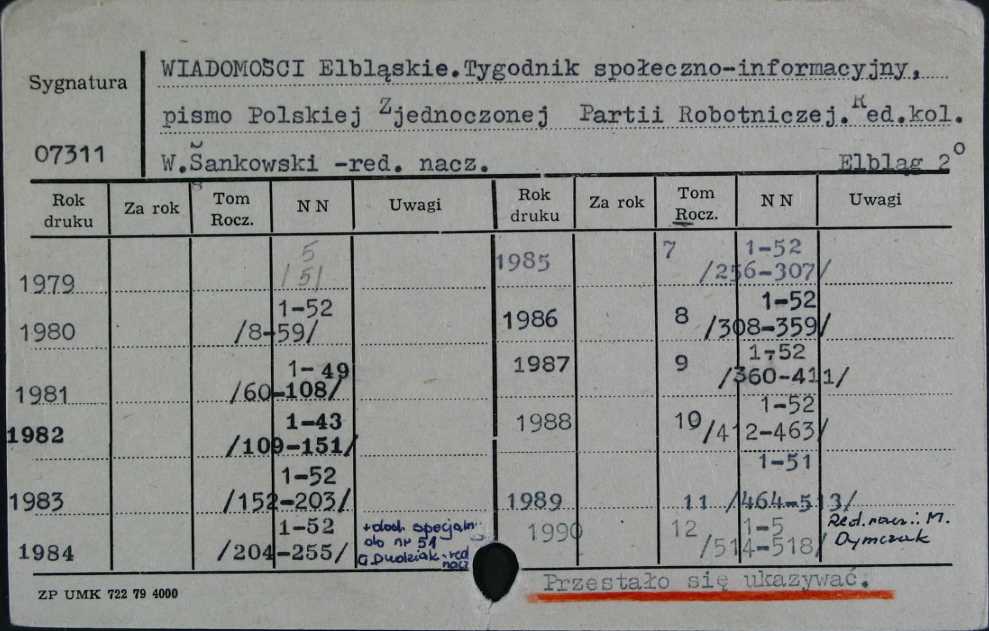 WIADOMOŚCI Elbląskie.Tygodnik społeczno-informacyjny,
Sygnatura
pismo Polskiej Zjednoczonej Partii Robotniczej. Red.kol.
07311
W.Sankowski -red. nacz. Elbląg 2°
Rok druku Za rok Tom Rocz. NN Uwagi Rok druku Za rok Tom Rocz. NN Uwagi
1979 5 /5/
1980 1-52 /8-59/
1981 1-49 /60-108/
1982 1-43 /109-151/
1983 1-52 /152-203/
1984 1-52 /204-255/ +dod. specjaln. do nr 51 G.Dudziak-red nacz
1985 7 1-52 /256-307/
1986 8 1-52 /308-359/
1987 9 1-52 /360-411/
1988 10 1-52 /412-463/
1989 11 1-51 /464-513/
1990 12 1-5 /514-518/ Red.nacz.: M. Dymczak
Przestało się ukazywać.
ZP UMK 722 79 4000